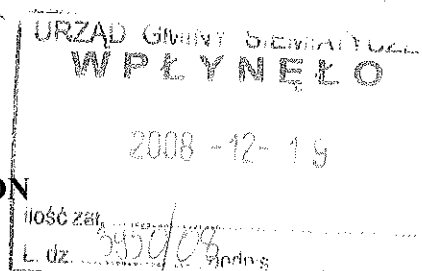 URZĄD GMINY SIEMIATYCZE
WPŁYNĘŁO
2008 -12- 19
ON
Ilość zał.
L. dz. podpis